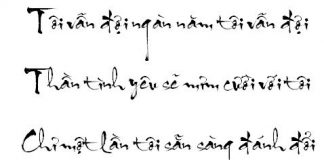 Tôi vẫn đợi ngàn năm tôi vẫn đợi
Thần tình yêu sẽ mỉm cười với tôi
Chỉ một lần tôi sẵn sàng đánh đổi